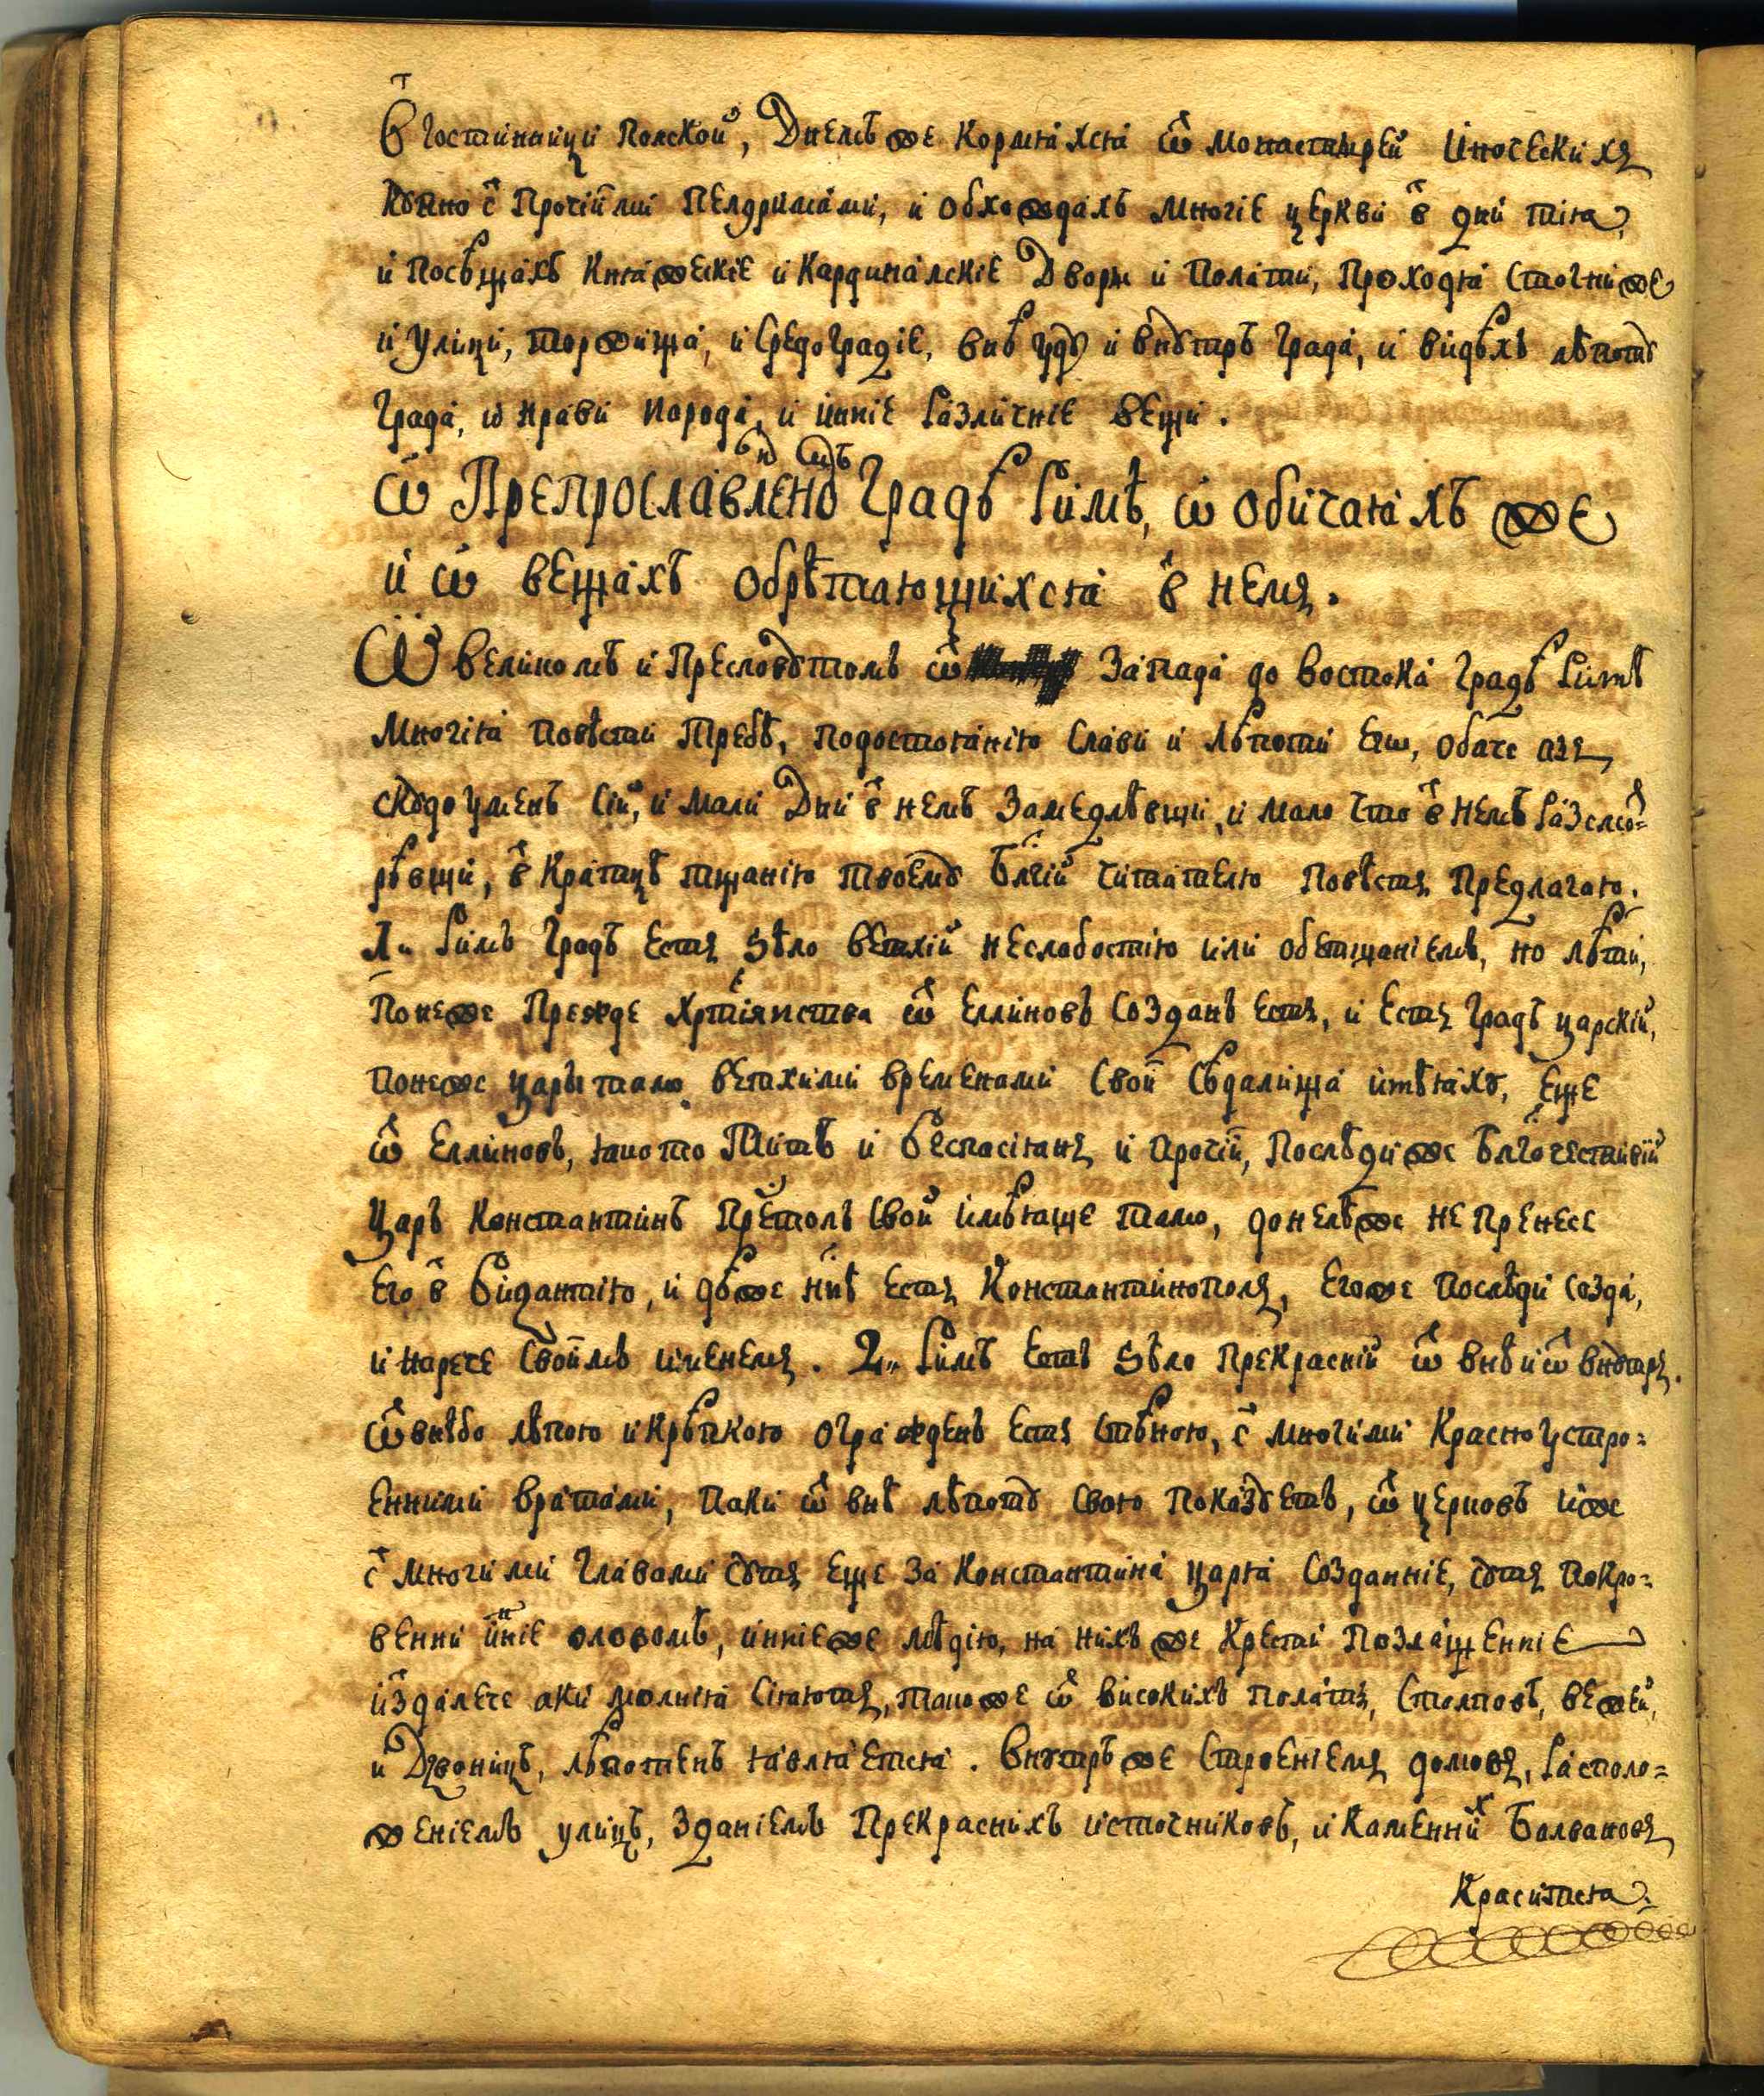 В гостинници Полской, Днемъ же кормяхся ѿ монастырей Иноческихъ
купно с̾ Прочіими Пелгримами, и обхождахъ многіе церкви в̾ дни тія,
и посѣщахъ Княжескіе и Кардиналскіе Двори и Полати, Проходя Стогни же
и Улици, торжища, и Средоградіе, внѣуду и внутръ града, и видѣхъ лѣпоту
града, и нрави народа, и инніе различніе вещи.
Ѿ Препрославленом Градѣ Римѣ, ѡ обичаяхъ же
и ѡ вещахъ обрѣтающихся в̾ немъ.
Ѡ великомъ и Пресловутомъ ѿ Запада до востока градѣ Римѣ
многія повѣсти Требѣ, подостоянію слави и лѣпоти его, обаче азъ
скудоуменъ сій, и мали Дни в̾ немъ замедлѣвши, и мало что в̾ немъ разсмо=
рѣвши, в̾ Кратцѣ тщанію твоему Блгій читателю повѣсть Предлагаю.
1„ Римъ градъ естъ ѕѣло ветхій неслабостію или обетщаніемъ, но лѣти,
Понеже Прежде Хртіянства ѿ Еллиновъ созданъ есть, и есть градъ царскій,
понеже цары тамо ветхими временами Свои Сѣдалища имѣяху, еще
ѿ Еллиновъ, якото Титъ и Веспасіянъ и прочіи, послѣди же Блгочестивій
Царъ Константинъ Престолъ свой имѣяше тамо, донелѣже не Пренесе
Его в̾ Видантію, и дѣже ннѣ есть Константинополъ, Егоже послѣди созда,
и нарече Своимъ именемъ. 2„ Римъ Естъ ѕѣло Прекрасній ѿ внѣ и ѿ внутръ.
Ѿ внѣбо лѣпою и крѣпкою огражденъ есть стѣною, с̾ многими Красноустро=
енними вратами, паки ѿ внѣ лѣпоту свою показуетъ, ѿ церковъ иже
с̾ многими главами суть еще за Константина царя созданніе, суть покро=
венни инніе оловомъ, инніеже мѣдію, на нихъ же Крести Позлащенніе
издалече аки молнія сіяють, такоже ѿ високихъ полатъ, Столповъ, вежей,
и Дзвоницъ, лѣпотенъ является. Внутръ же Строеніемъ домовъ, располо=
женіемъ улицъ, Зданіемъ Прекраснихъ источниковъ, и Каменнихъ Балвановъ
Красится.